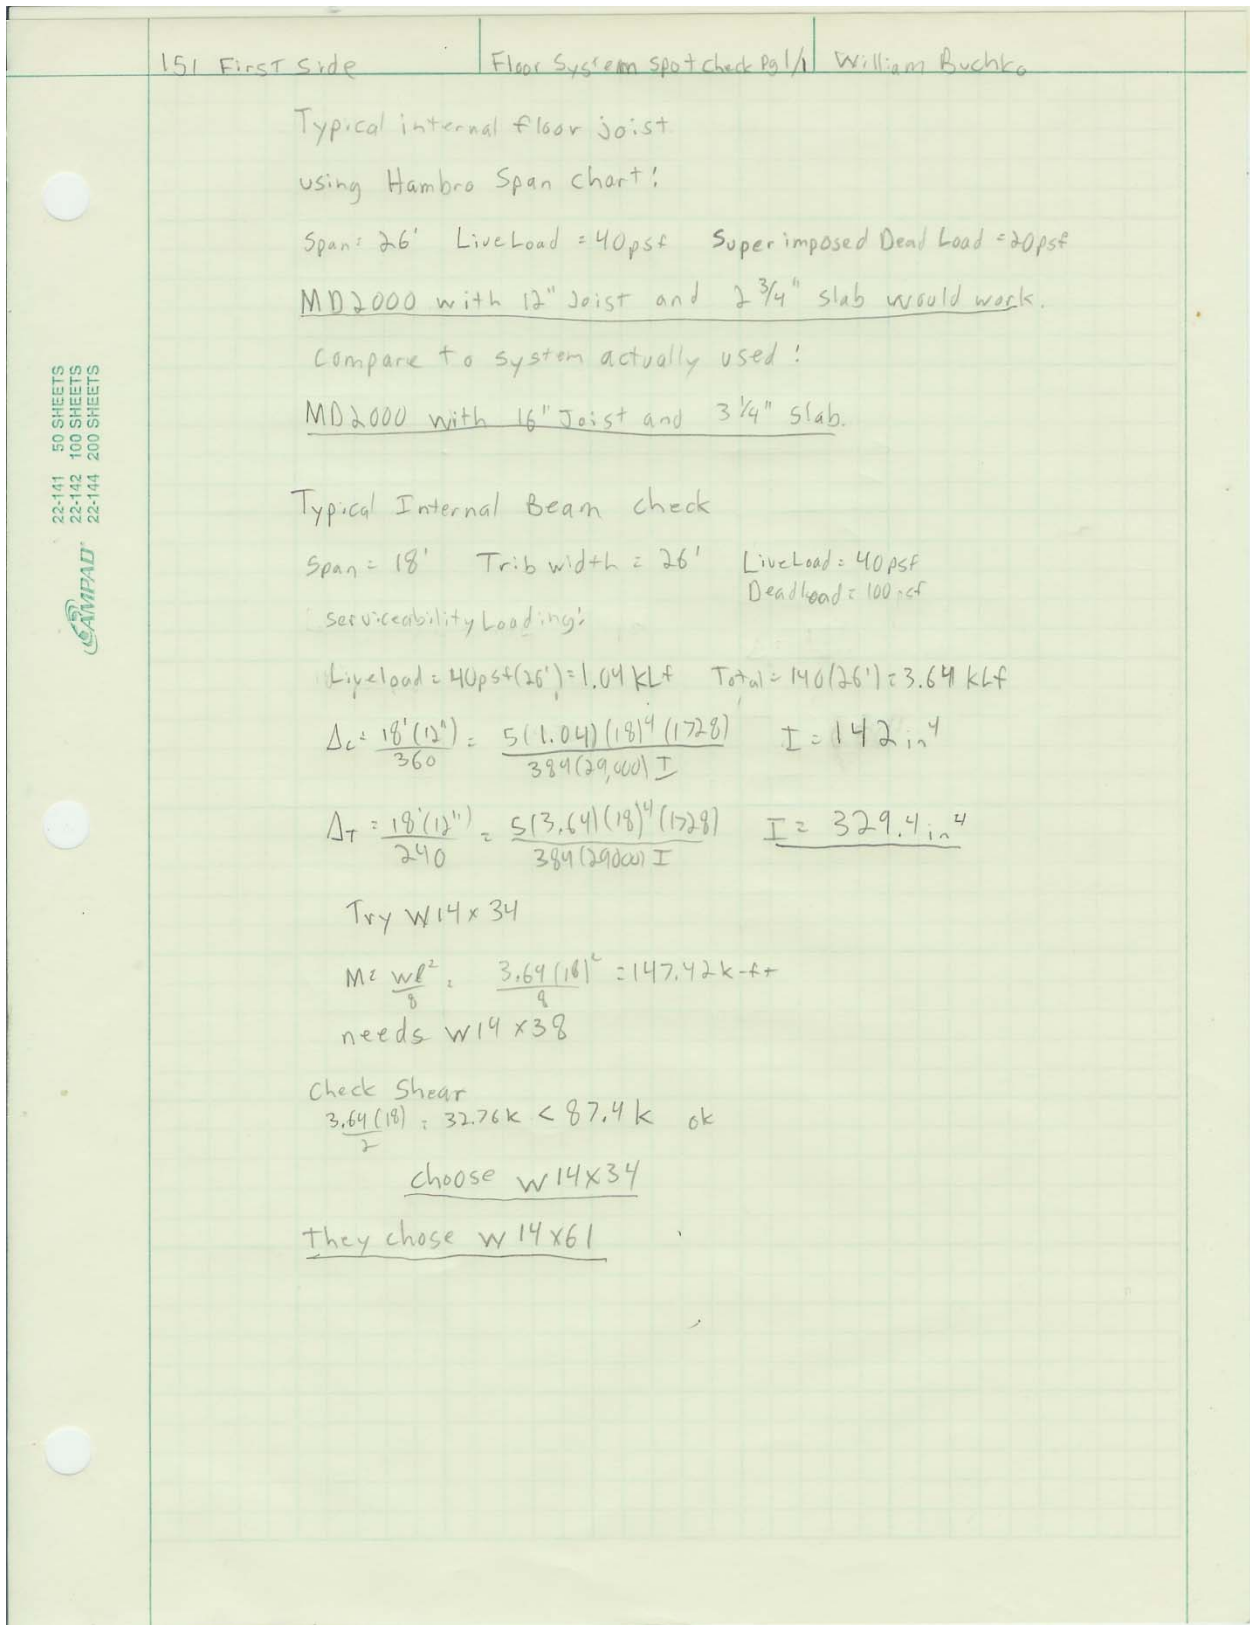 151 First Side
Floor System spot check Pg 1/1
William Buchko
Typical internal floor joist
using Hambro Span chart:
Span: 26' Live Load = 40psf Superimposed Dead Load = 20psf
MD2000 with 12" Joist and 2 3/4" slab would work.
Compare to system actually used:
MD2000 with 16" Joist and 3 1/4" Slab.
22-141 50 SHEETS
22-142 100 SHEETS
22-144 200 SHEETS
CAMPAD
Typical Internal Beam check
Span = 18' Trib width = 26' Live Load = 40psf
Dead Load = 100
serviceability Loading:
Liveload = 40psf(26') = 1.04 kLf Total = 140(26') = 3.64 kLf
ΔL = 18'(12")/360 = 5(1.04)(18)^4(1728)/384(29,000) I I = 142 in^4
ΔT = 18'(12")/240 = 5(3.64)(18)^4(1728)/384(29000) I I = 329.4 in^4
Try W14 x 34
M = wl^2/8 = 3.64(18)^2/8 = 147.42 k-ft
needs W14 x38
Check Shear
3.64(18)/2 = 32.76k < 87.4k ok
choose W14x34
they chose W14x61